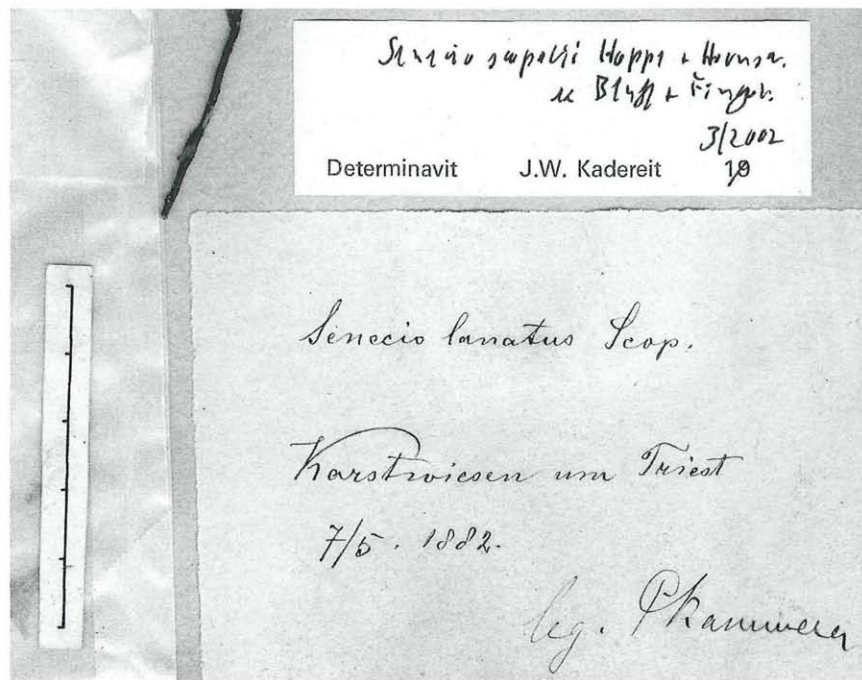 Senecio scopolii Hoppe + Hornsch.
ex Bluff + Fingerh.
3/2002
Determinavit J.W. Kadereit 19
Senecio lanatus Scop.
Karstwiesen um Triest
7/5. 1882.
leg.